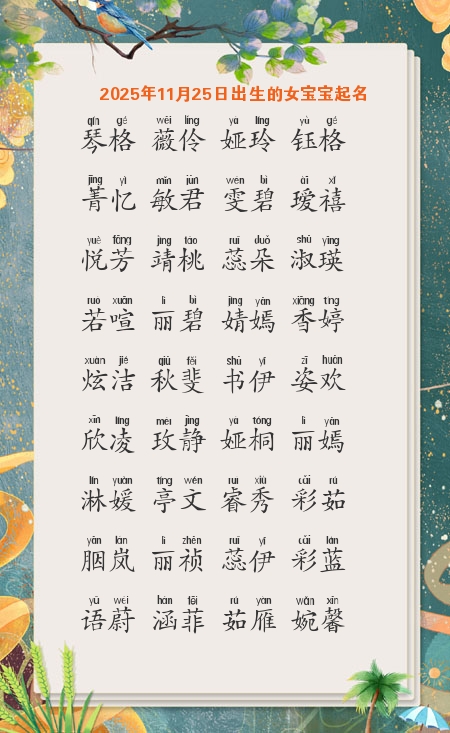 2025年11月25日出生的女宝宝起名
qín gé wēi líng yà líng yù gé
琴格 薇伶 娅玲 钰格
jīng yì mǐn jūn wén bì ài xǐ
菁忆 敏君 雯碧 瑷禧
yuè fāng jìng táo ruǐ duǒ shū yīng
悦芳 靖桃 蕊朵 淑瑛
ruò xuān lì bì jìng yān xiāng tíng
若喧 丽碧 婧嫣 香婷
xuàn jié qiū fěi shū yī zī huān
炫洁 秋斐 书伊 姿欢
xīn líng méi jìng yà tóng lì yān
欣凌 玫静 娅桐 丽嫣
lín yuàn tíng wén ruì xiù cǎi rú
淋媛 亭文 睿秀 彩茹
yān lán lì zhēn ruǐ yī cǎi lán
胭岚 丽祯 蕊伊 彩蓝
yǔ wèi hán fēi rú yàn wǎn xīn
语蔚 涵菲 茹雁 婉馨